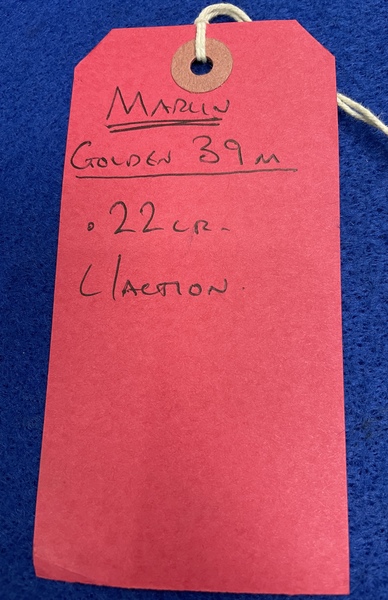 MARLIN
GOLDEN 39M
.22 LR.
L/ACTION.